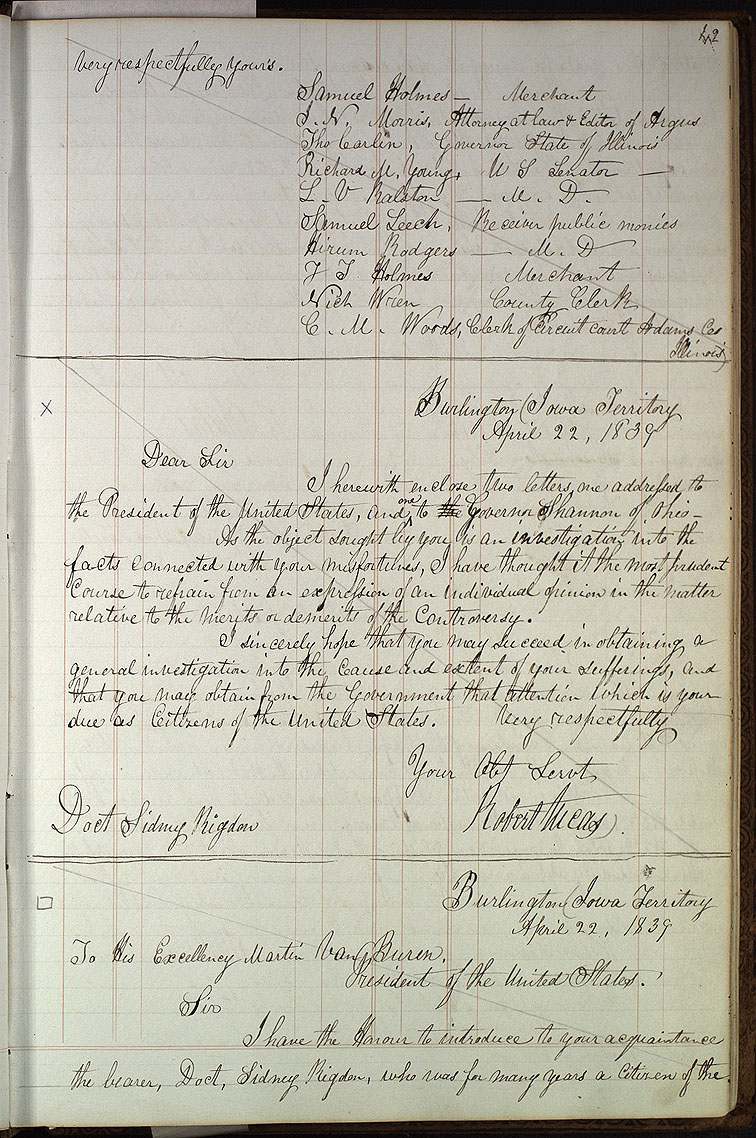 42
very respectfully your's.
Samuel Holmes — Merchant
I. N. Morris, Attorney at law & Editor of Argus
Tho Carlin, Governor State of Illinois
Richard M. Young, U S Senator —
L. V Ralston — M. D.
Samuel Leech, Receiver public monies
Hirum Rodgers — M. D
J T Holmes Merchant
Nich Wren County Clerk
C. M. Woods, Clerk of Circuit court Adams Co
Illinois
Burlington (Iowa Territory
April 22, 1839
Dear Sir
I herewith enclose two letters, one addressed to
the President of the United States, and one to the Governor Shannon of Ohio —
As the object sought by you is an investigation into the
facts connected with your misfortunes, I have thought it the most prudent
Course to refrain from an expression of an individual opinion in the matter
relative to the merits or demerits of the Controversy.
I sincerely hope that you may succeed in obtaining a
general investigation into the Cause and extent of your sufferings, and
that you may obtain from the Government that attention which is your
due as Citizens of the United States. Very respectfully
Your Obt Servt
Doct Sidney Rigdon Robert Lucas
Burlington (Iowa Territory
April 22, 1839
To His Excellency Martin Van Buren,
President of the United States.
Sir
I have the Honour to introduce to your acquaintance
the bearer, Doct, Sidney Rigdon, who was for many years a citizen of the